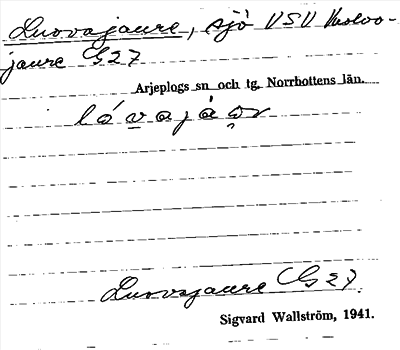 Luovvajaure, sjö VSV
jaure G27
Arjeplogs sn och tg. Norrbottens län.
lávajáo̭r
Luovvajaure G27.
Sigvard Wallström, 1941.